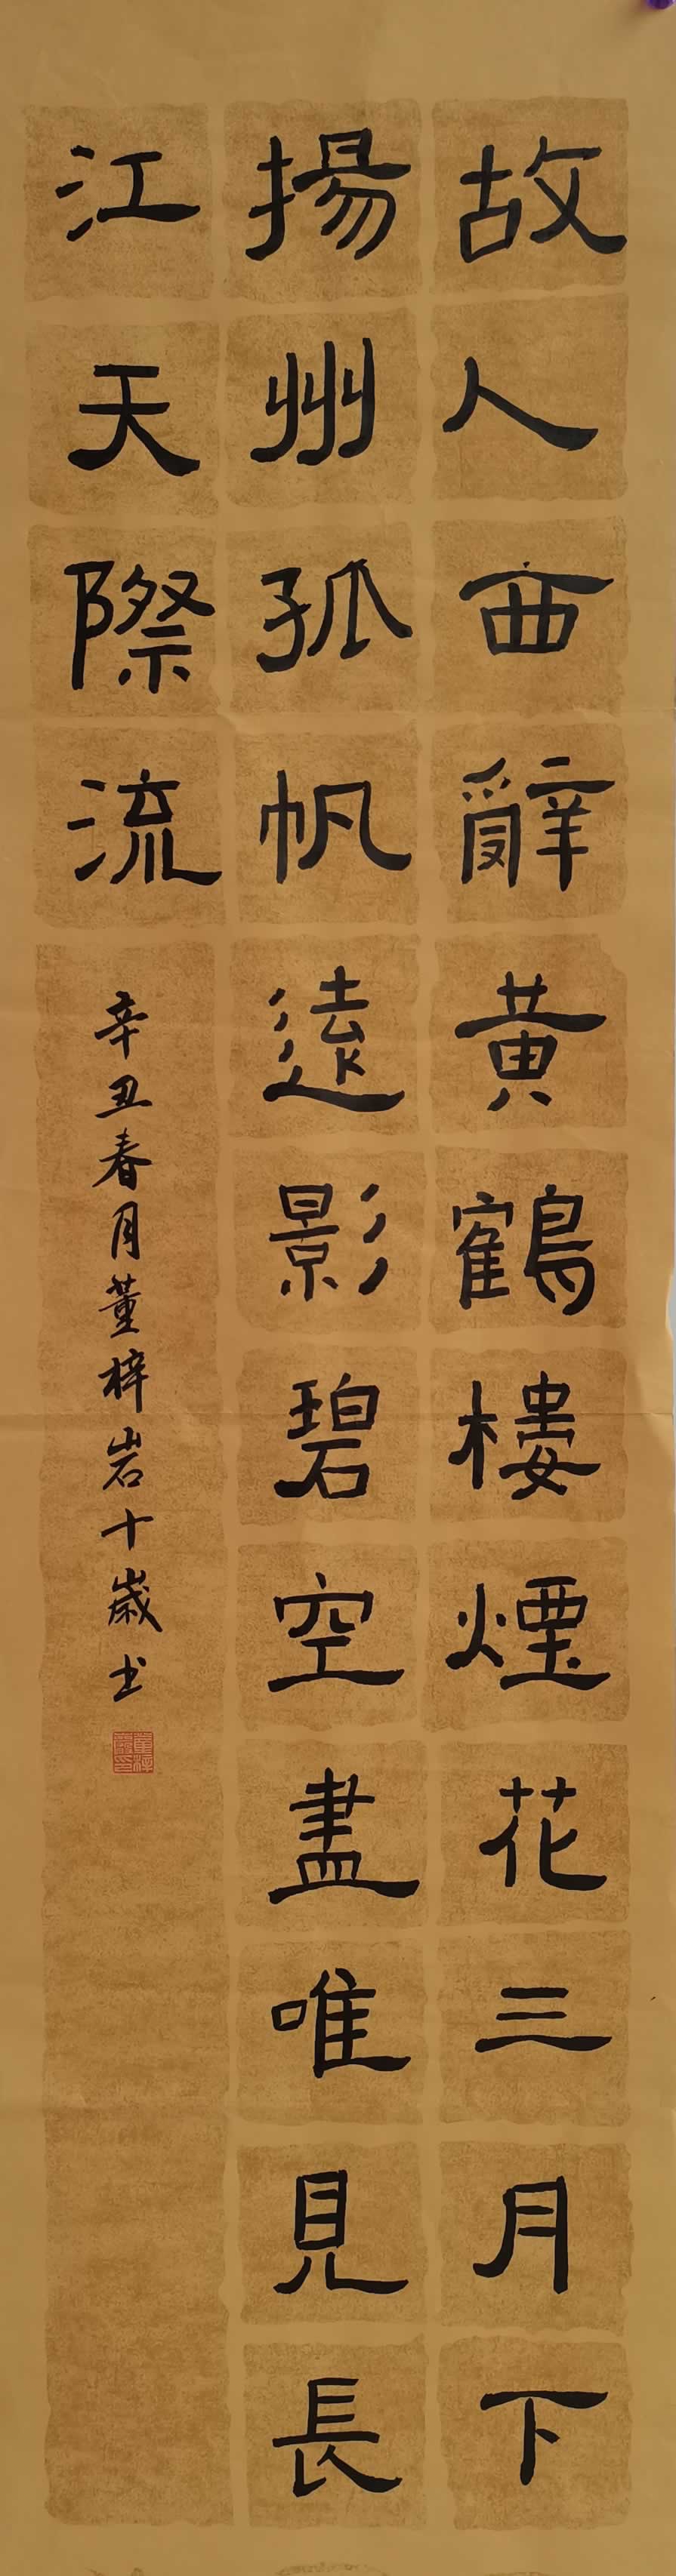 故人西辭黃鶴樓煙花三月下
揚州孤帆遠影碧空盡唯見長
江天際流
辛丑春月董梓岩十歲书